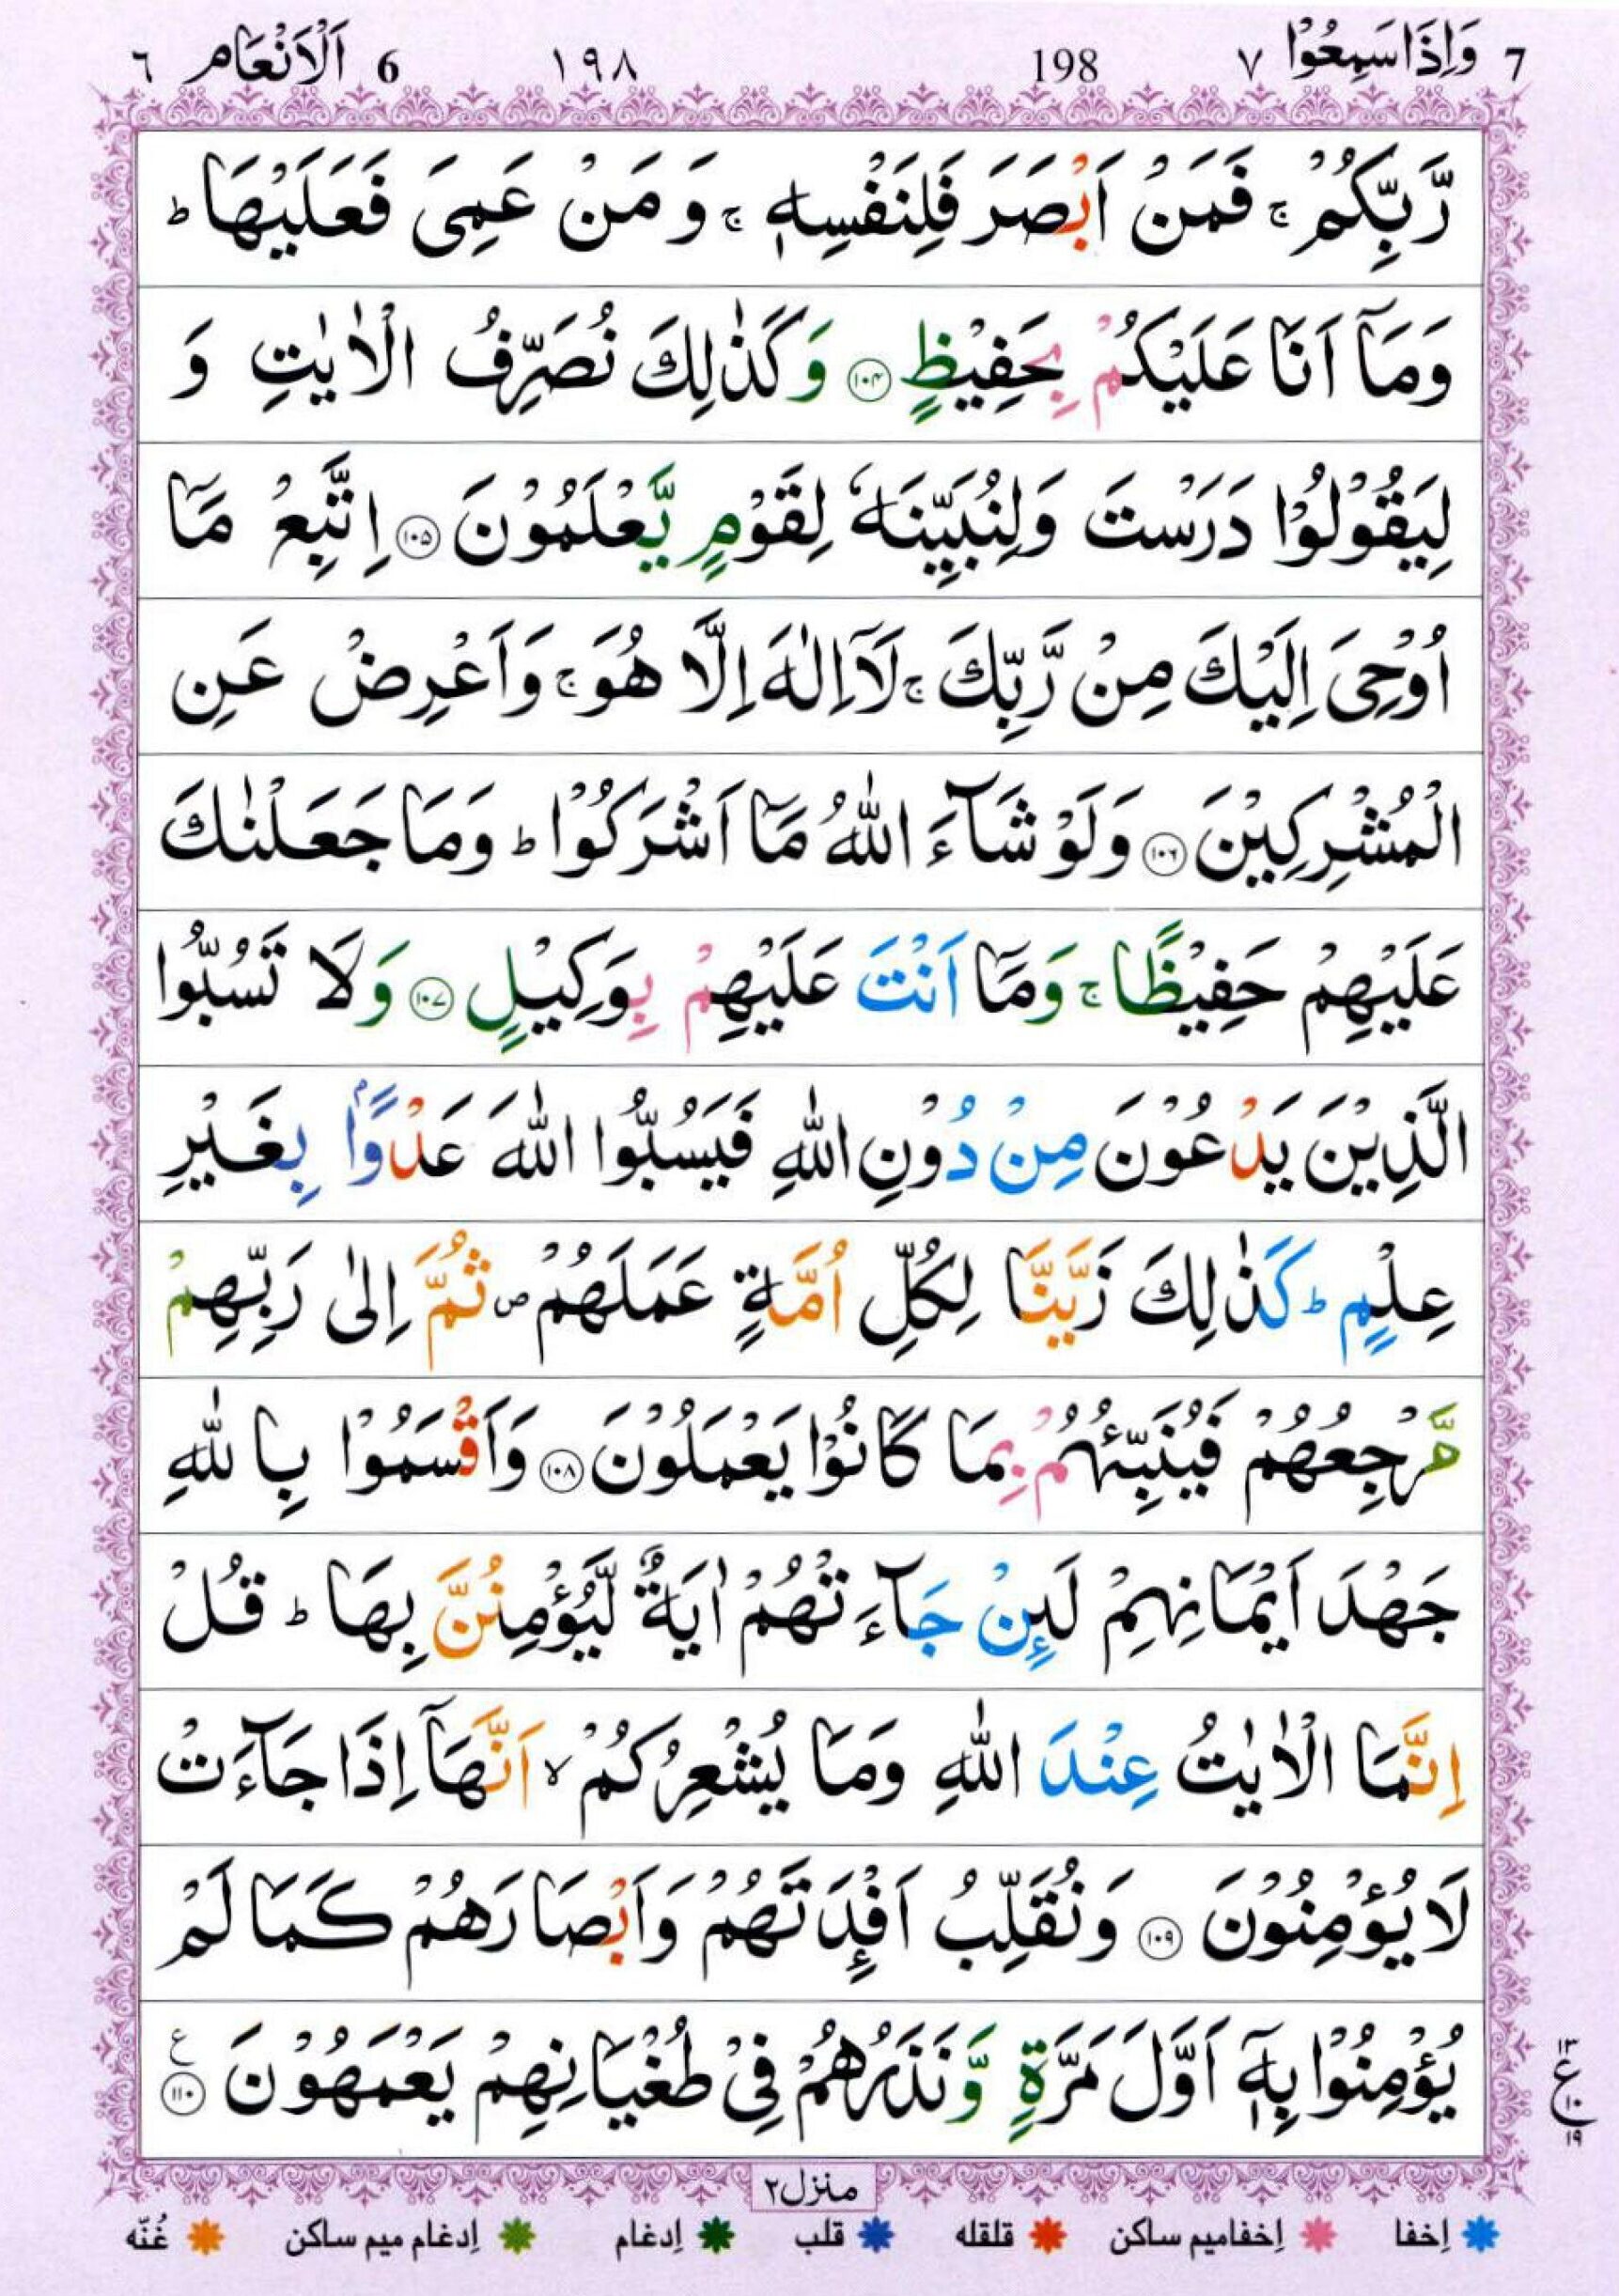 7 وَاِذَا سَمِعُوْا ٧ 198 ١٩٨ 6 اَلْاَنْعَام ٦
رَّبِّكُمْ ۚ فَمَنْ اَبْصَرَ فَلِنَفْسِهٖ ۚ وَ مَنْ عَمِیَ فَعَلَیْهَا ؕ
وَمَاۤ اَنَا عَلَیْكُمْ بِحَفِیْظٍ ﴿۱۰۴﴾ وَكَذٰلِكَ نُصَرِّفُ الْاٰیٰتِ وَ
لِیَقُوْلُوْا دَرَسْتَ وَلِنُبَیِّنَهٗ لِقَوْمٍ یَّعْلَمُوْنَ ﴿۱۰۵﴾ اِتَّبِعْ مَاۤ
اُوْحِیَ اِلَیْكَ مِنْ رَّبِّكَ ۚ لَاۤ اِلٰهَ اِلَّا هُوَ ۚ وَاَعْرِضْ عَنِ
الْمُشْرِكِیْنَ ﴿۱۰۶﴾ وَلَوْ شَآءَ اللّٰهُ مَاۤ اَشْرَكُوْا ؕ وَمَا جَعَلْنٰكَ
عَلَیْهِمْ حَفِیْظًا ۚ وَمَاۤ اَنْتَ عَلَیْهِمْ بِوَكِیْلٍ ﴿۱۰۷﴾ وَلَا تَسُبُّوا
الَّذِیْنَ یَدْعُوْنَ مِنْ دُوْنِ اللّٰهِ فَیَسُبُّوا اللّٰهَ عَدْوًۢا بِغَیْرِ
عِلْمٍ ؕ كَذٰلِكَ زَیَّنَّا لِكُلِّ اُمَّةٍ عَمَلَهُمْ ۪ ثُمَّ اِلٰی رَبِّهِمْ
مَّرْجِعُهُمْ فَیُنَبِّئُهُمْ بِمَا كَانُوْا یَعْمَلُوْنَ ﴿۱۰۸﴾ وَاَقْسَمُوْا بِاللّٰهِ
جَهْدَ اَیْمَانِهِمْ لَىِٕنْ جَآءَتْهُمْ اٰیَةٌ لَّیُؤْمِنُنَّ بِهَا ؕ قُلْ
اِنَّمَا الْاٰیٰتُ عِنْدَ اللّٰهِ وَمَا یُشْعِرُكُمْ ۙ اَنَّهَاۤ اِذَا جَآءَتْ
لَا یُؤْمِنُوْنَ ﴿۱۰۹﴾ وَنُقَلِّبُ اَفْـِٕدَتَهُمْ وَاَبْصَارَهُمْ كَمَا لَمْ
یُؤْمِنُوْا بِهٖۤ اَوَّلَ مَرَّةٍ وَّنَذَرُهُمْ فِیْ طُغْیَانِهِمْ یَعْمَهُوْنَ ﴿۱۱۰﴾ ع
۱۳ ع ۱۰ ۱۹
منزل ۲
اِخفا اِخفامیم ساکن قلقله قلب اِدغام اِدغام میم ساکن غُنّه